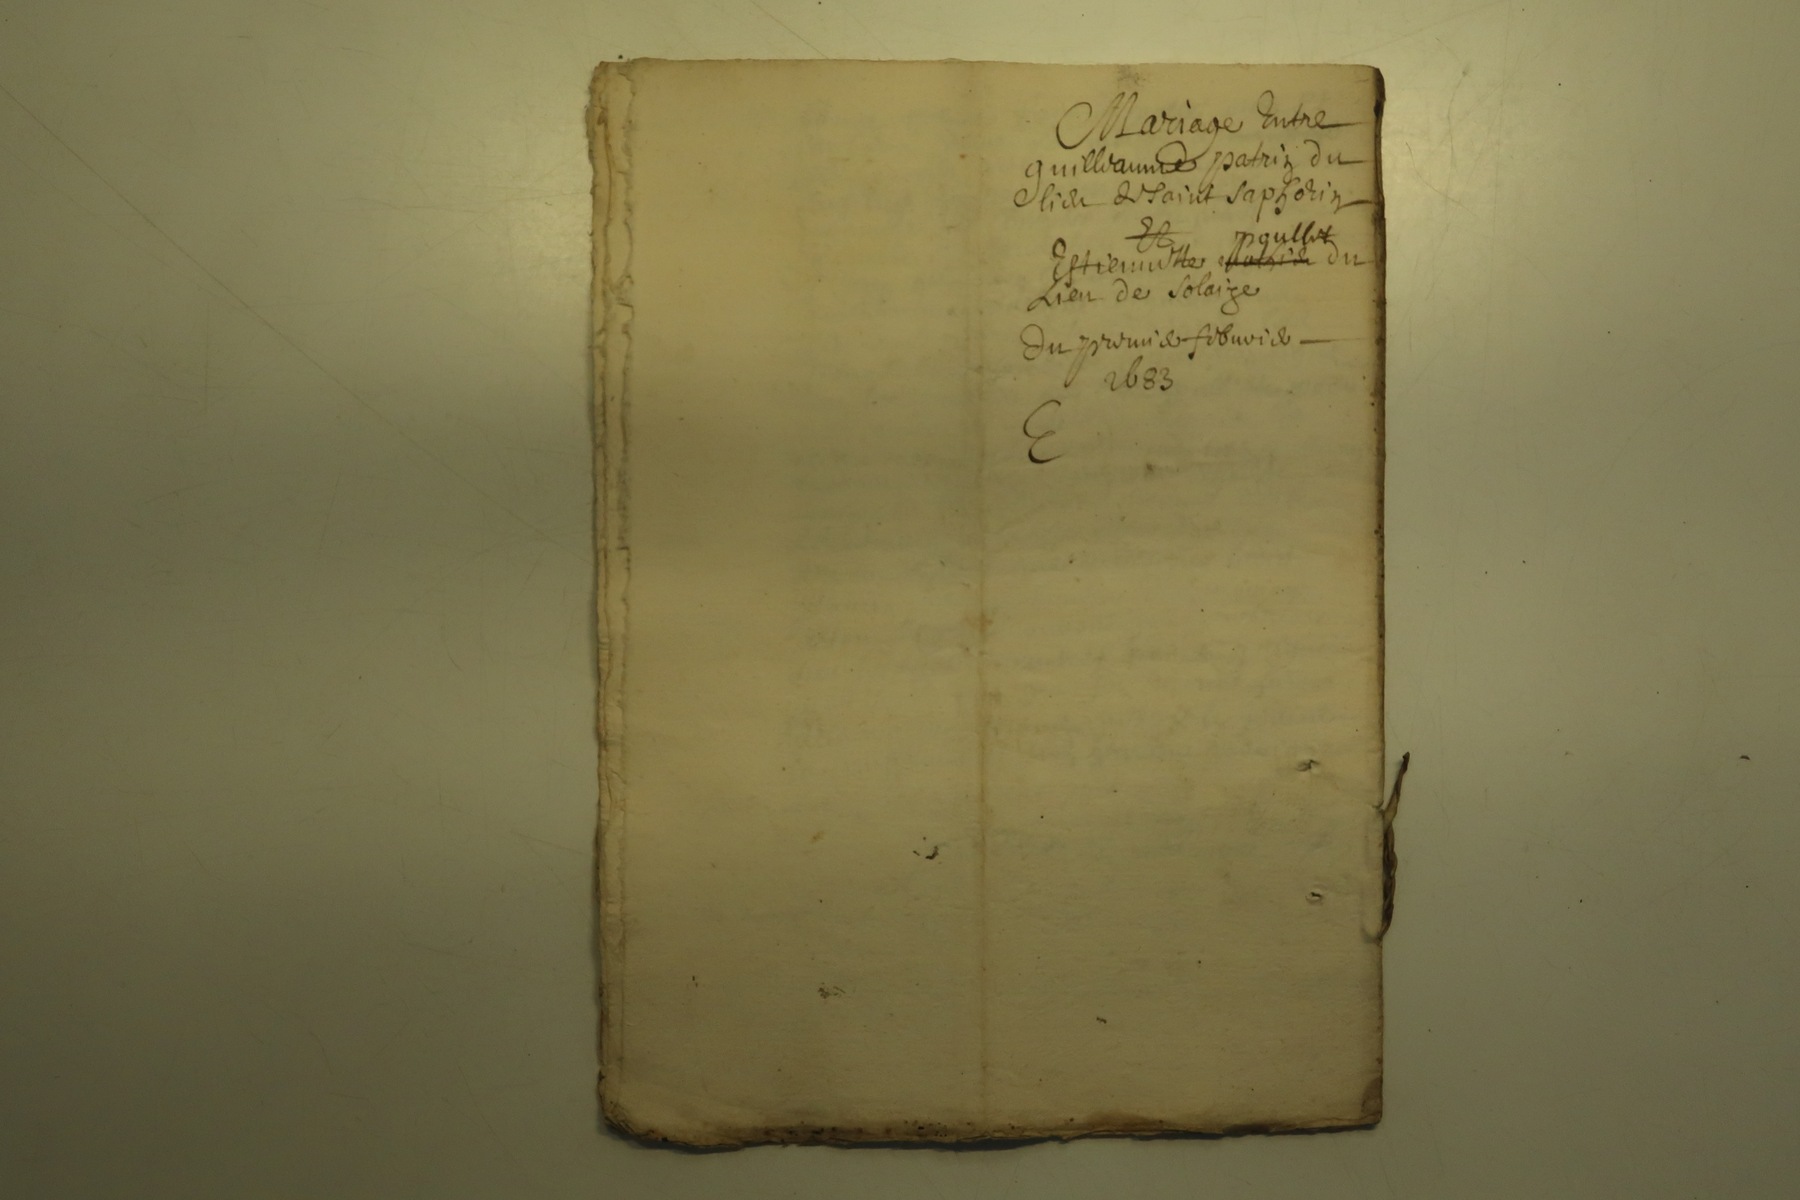 Mariage Entre
guilleaume patrin du
lieu de Saint Saphorin
Et
Estiennette poullet du
Lieu de Solaize
Du premier febvrier
1683
E